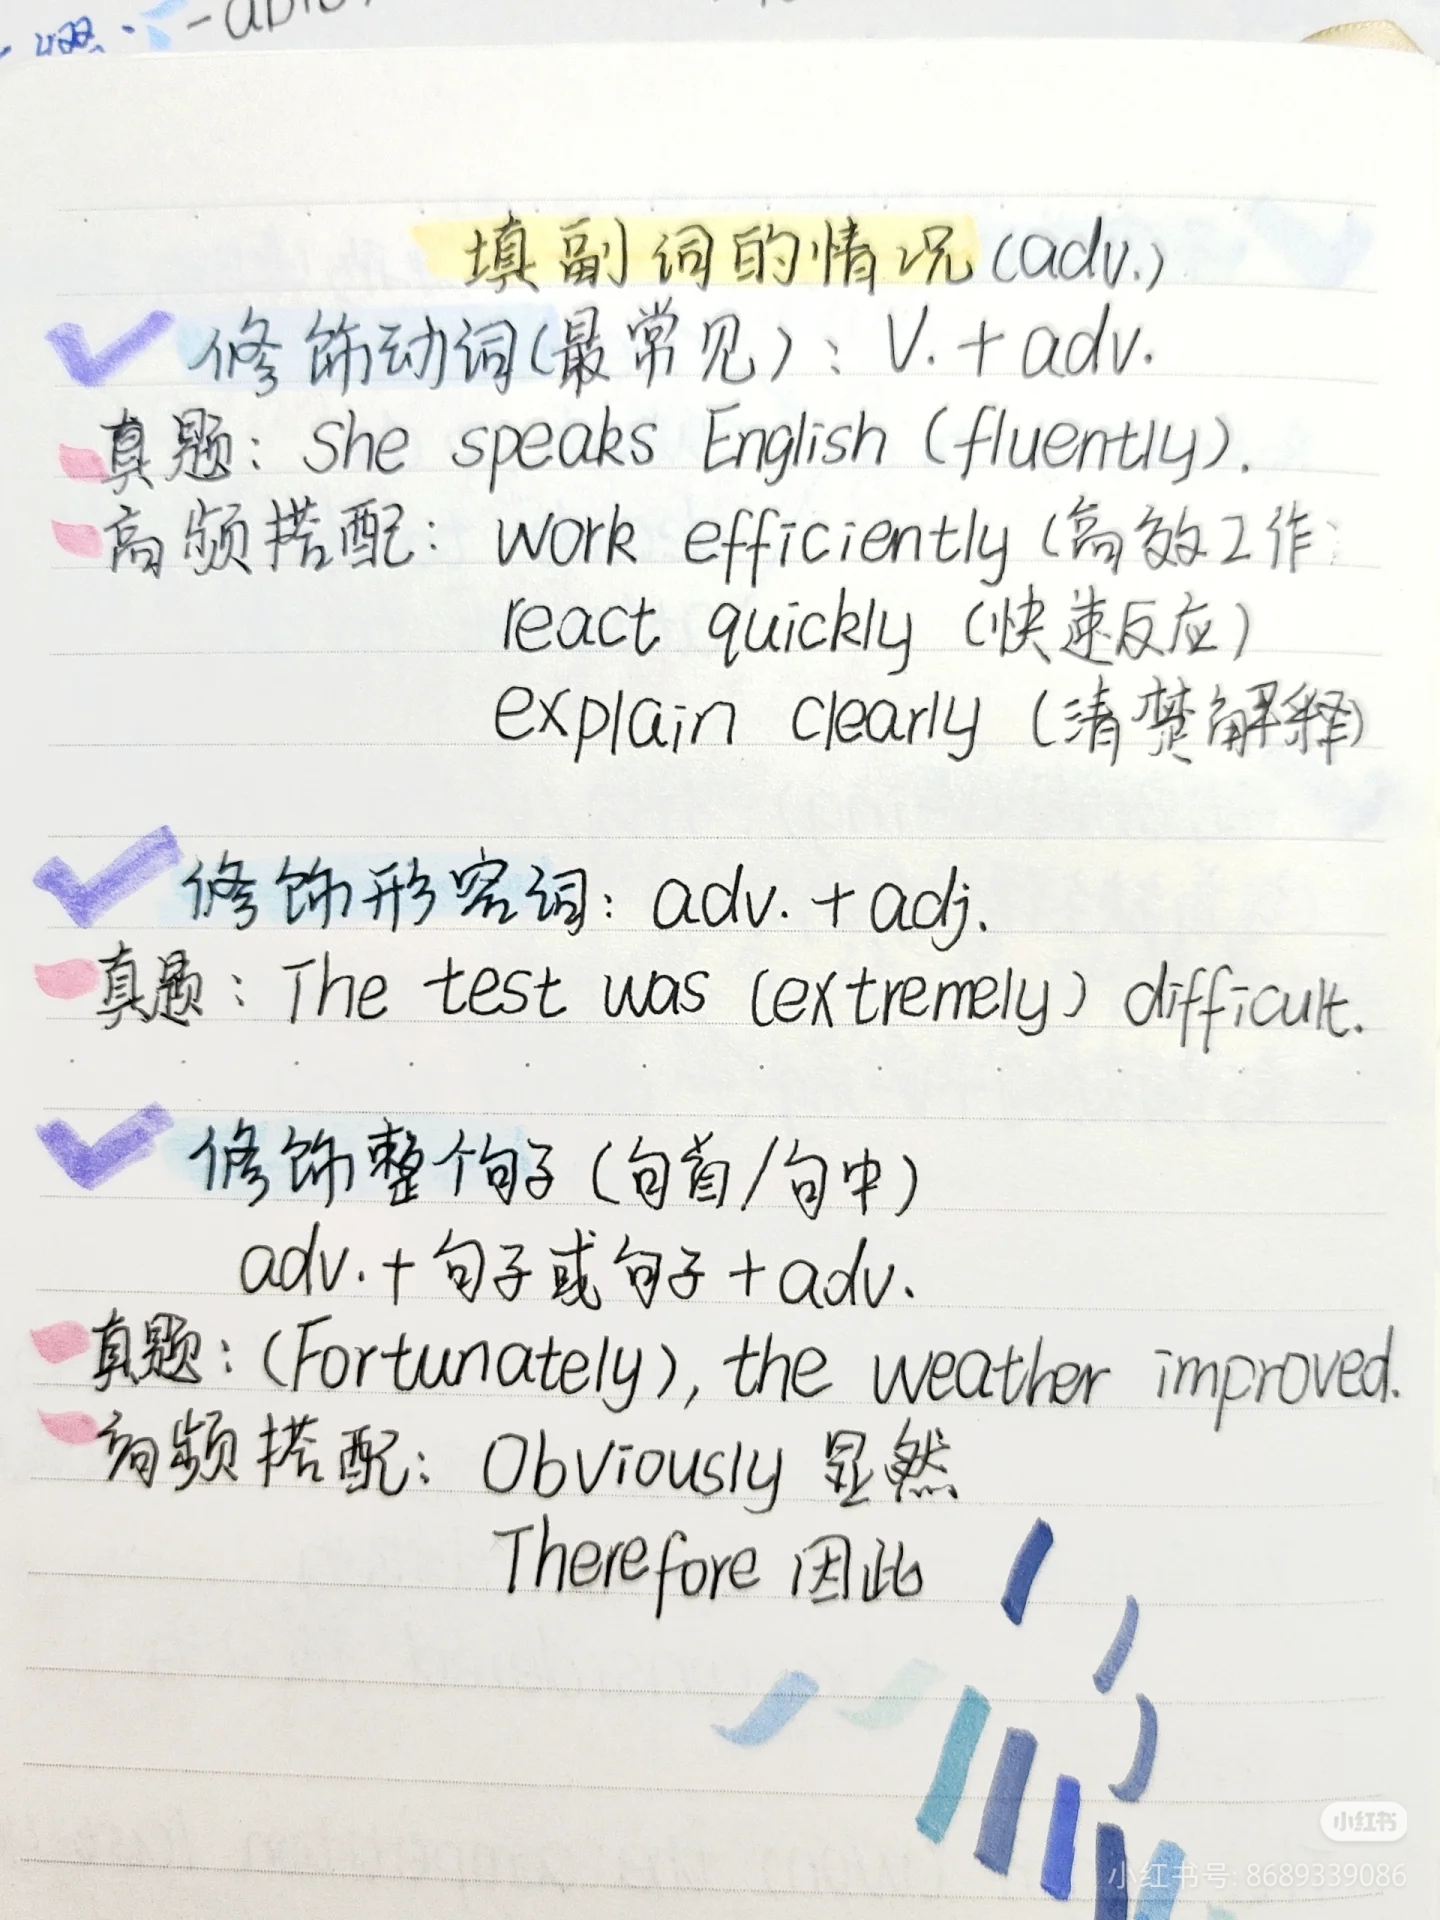 填副词的情况(adv.)
修饰动词(最常见): V. + adv.
真题: She speaks English (fluently).
高频搭配: work efficiently (高效工作
react quickly (快速反应)
explain clearly (清楚解释)
修饰形容词: adv. + adj.
真题: The test was (extremely) difficult.
修饰整个句子(句首/句中)
adv. + 句子或句子 + adv.
真题: (Fortunately), the weather improved.
高频搭配: Obviously 显然
Therefore 因此
小红书
小红书号: 8689339086